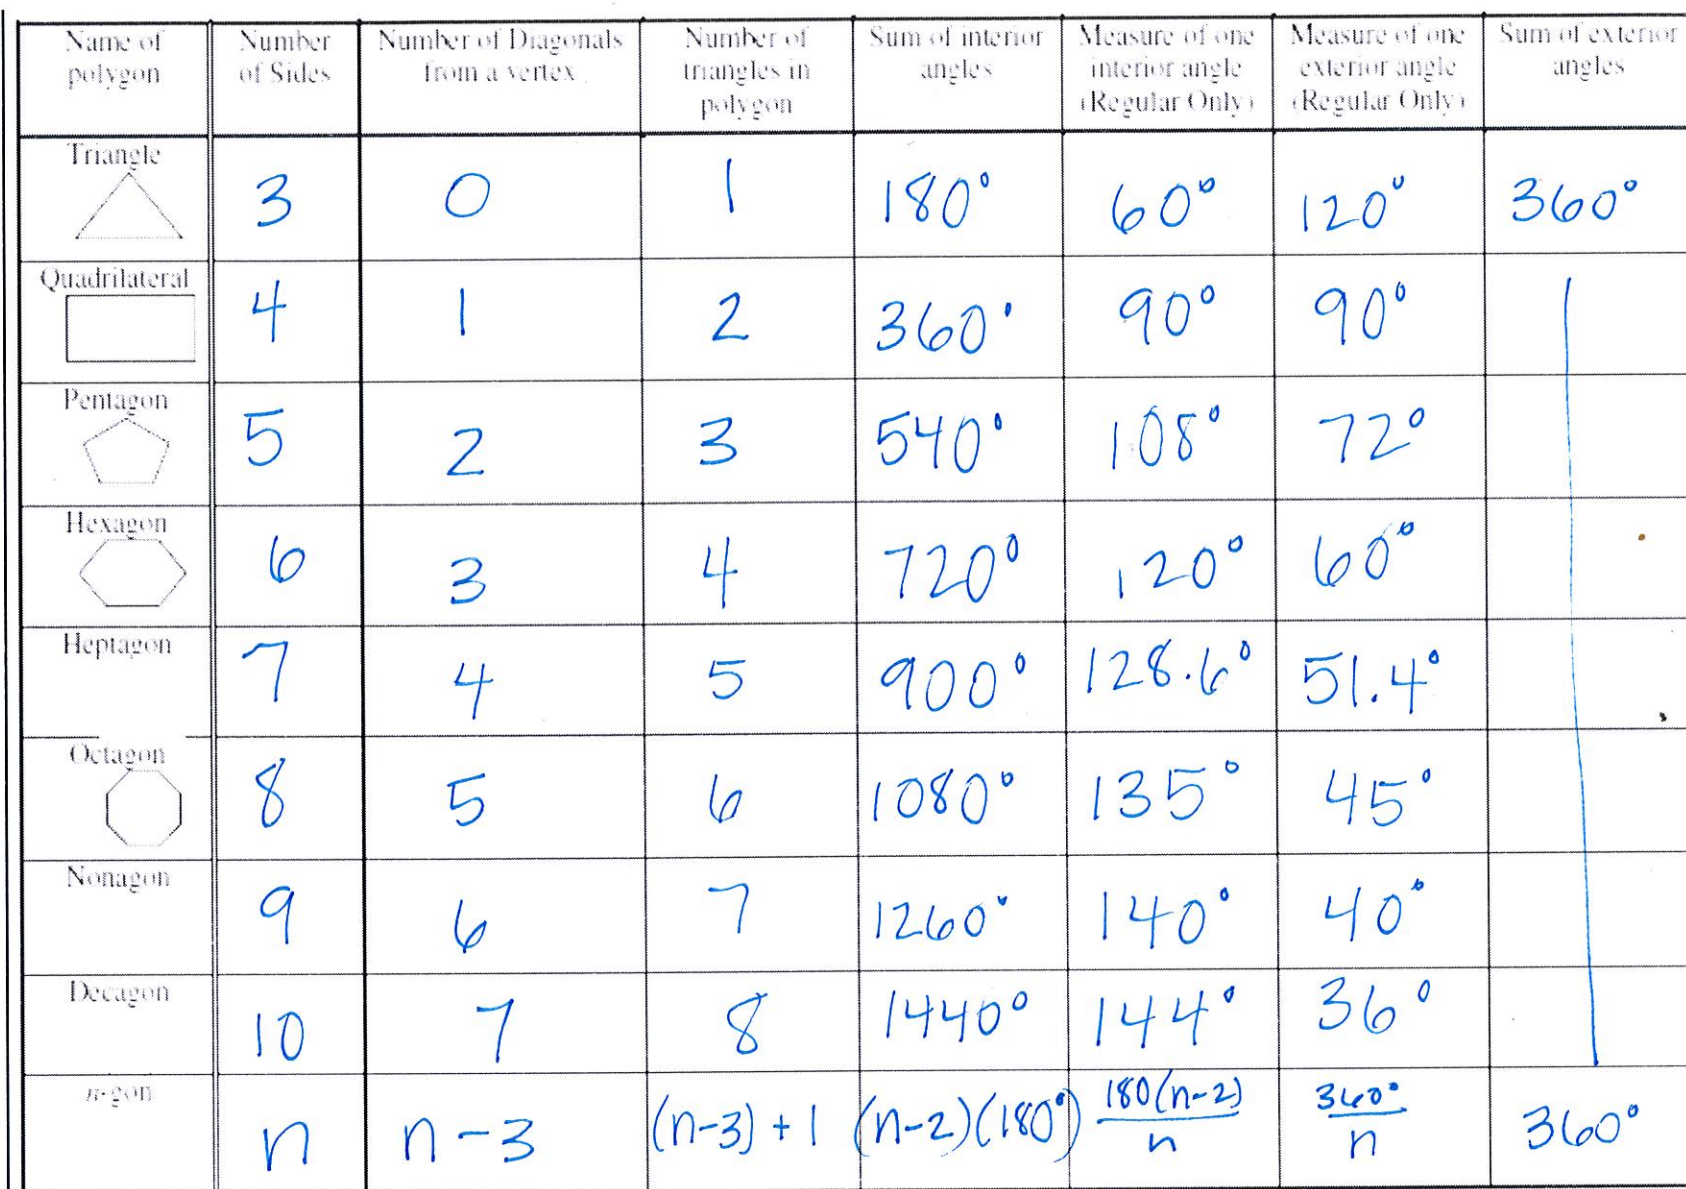 Name of polygon | Number of Sides | Number of Diagonals from a vertex | Number of triangles in polygon | Sum of interior angles | Measure of one interior angle (Regular Only) | Measure of one exterior angle (Regular Only) | Sum of exterior angles
Triangle | 3 | 0 | 1 | 180° | 60° | 120° | 360°
Quadrilateral | 4 | 1 | 2 | 360° | 90° | 90°
Pentagon | 5 | 2 | 3 | 540° | 108° | 72°
Hexagon | 6 | 3 | 4 | 720° | 120° | 60°
Heptagon | 7 | 4 | 5 | 900° | 128.6° | 51.4°
Octagon | 8 | 5 | 6 | 1080° | 135° | 45°
Nonagon | 9 | 6 | 7 | 1260° | 140° | 40°
Decagon | 10 | 7 | 8 | 1440° | 144° | 36°
n-gon | n | n-3 | (n-3)+1 | (n-2)(180°) | 180(n-2)/n | 360°/n | 360°